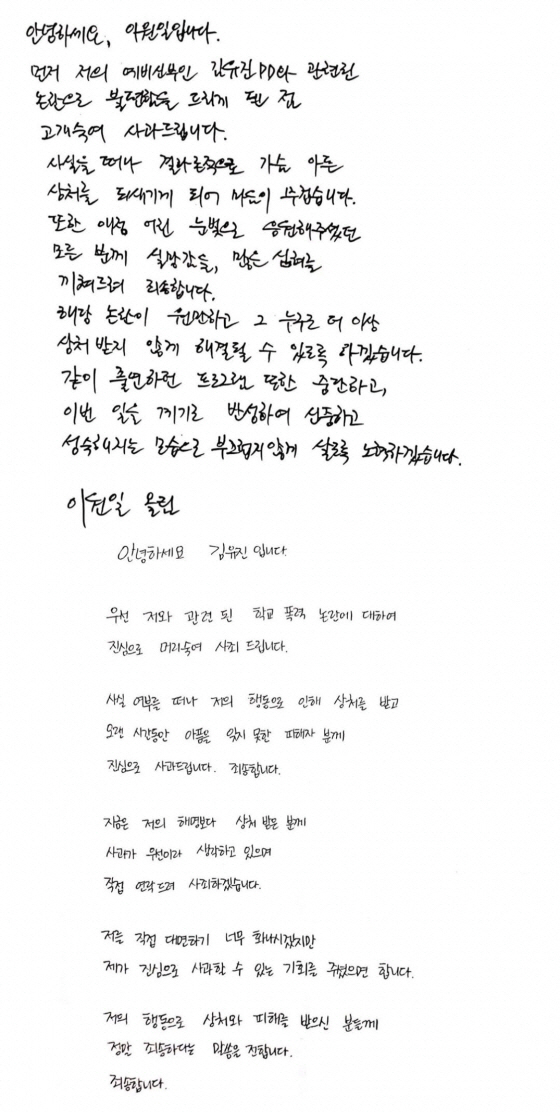 안녕하세요, 이원일입니다.
먼저 저의 예비신부인 김유진PD와 관련된
논란으로 불편함을 드리게 된 점
고개숙여 사과드립니다.
사실을 떠나 결과론적으로 가슴 아픈
상처를 되새기게 되어 마음이 무겁습니다.
또한 애정 어린 눈빛으로 응원해주셨던
모든 분께 실망감을, 많은 심려를
끼쳐드려 죄송합니다.
해당 논란이 원만하고 그 누구도 더 이상
상처 받지 않게 해결될 수 있도록 하겠습니다.
같이 출연하던 프로그램 또한 중단하고,
이번 일을 계기로 반성하여 신중하고
성숙해지는 모습으로 부끄럽지않게 살도록 노력하겠습니다.
이원일 올림
안녕하세요 김유진 입니다.
우선 저와 관견 된 학교 폭력 논란에 대하여
진심으로 머리숙여 사죄 드립니다.
사실 여부를 떠나 저의 행동으로 인해 상처를 받고
오랜 시간동안 아픔을 잊지 못한 피해자 분께
진심으로 사과드립니다. 죄송합니다.
지금은 저의 해명보다 상처 받은 분께
사과가 우선이라 생각하고 있으며
직접 연락드려 사죄하겠습니다.
저를 직접 대면하기 너무 화나시겠지만
제가 진심으로 사과할 수 있는 기회를 주셨으면 합니다.
저의 행동으로 상처와 피해를 받으신 분들께
정말 죄송하다는 말씀을 전합니다.
죄송합니다.